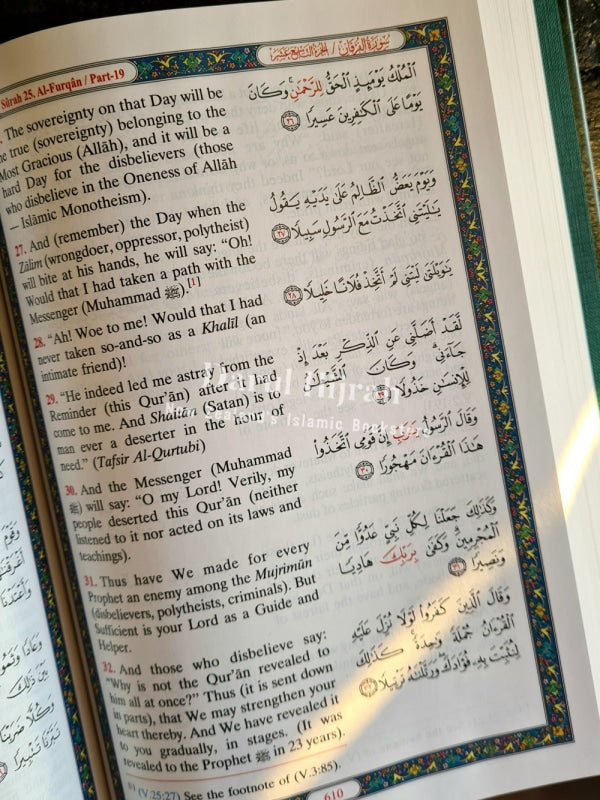 Sûrah 25. Al-Furqân / Part-19
سورة الفرقان / الجزء التاسع عشر
The sovereignty on that Day will be
the true (sovereignty) belonging to the
Most Gracious (Allâh), and it will be a
hard Day for the disbelievers (those
who disbelieve in the Oneness of Allâh
— Islâmic Monotheism).
ٱلْمُلْكُ يَوْمَئِذٍ ٱلْحَقُّ لِلرَّحْمَـٰنِ ۚ وَكَانَ
يَوْمًا عَلَى ٱلْكَـٰفِرِينَ عَسِيرًا ٢٦
27. And (remember) the Day when the
Zâlim (wrongdoer, oppressor, polytheist)
will bite at his hands, he will say: "Oh!
Would that I had taken a path with the
Messenger (Muhammad ﷺ).[1]
وَيَوْمَ يَعَضُّ ٱلظَّالِمُ عَلَىٰ يَدَيْهِ يَقُولُ
يَـٰلَيْتَنِى ٱتَّخَذْتُ مَعَ ٱلرَّسُولِ سَبِيلًا ٢٧
28. "Ah! Woe to me! Would that I had
never taken so-and-so as a Khalîl (an
intimate friend)!
يَـٰوَيْلَتَىٰ لَيْتَنِى لَمْ أَتَّخِذْ فُلَانًا خَلِيلًا ٢٨
29. "He indeed led me astray from the
Reminder (this Qur'ân) after it had
come to me. And Shaitân (Satan) is to
man ever a deserter in the hour of
need." (Tafsir Al-Qurtubi)
لَّقَدْ أَضَلَّنِى عَنِ ٱلذِّكْرِ بَعْدَ إِذْ
جَآءَنِى ۗ وَكَانَ ٱلشَّيْطَـٰنُ
لِلْإِنسَـٰنِ خَذُولًا ٢٩
30. And the Messenger (Muhammad
ﷺ) will say: "O my Lord! Verily, my
people deserted this Qur'ân (neither
listened to it nor acted on its laws and
teachings).
وَقَالَ ٱلرَّسُولُ يَـٰرَبِّ إِنَّ قَوْمِى ٱتَّخَذُوا۟
هَـٰذَا ٱلْقُرْءَانَ مَهْجُورًا ٣٠
31. Thus have We made for every
Prophet an enemy among the Mujrimûn
(disbelievers, polytheists, criminals). But
Sufficient is your Lord as a Guide and
Helper.
وَكَذَٰلِكَ جَعَلْنَا لِكُلِّ نَبِىٍّ عَدُوًّا مِّنَ
ٱلْمُجْرِمِينَ ۗ وَكَفَىٰ بِرَبِّكَ هَادِيًا
وَنَصِيرًا ٣١
32. And those who disbelieve say:
"Why is not the Qur'ân revealed to
him all at once?" Thus (it is sent down
in parts), that We may strengthen your
heart thereby. And We have revealed it
to you gradually, in stages. (It was
revealed to the Prophet ﷺ in 23 years).
وَقَالَ ٱلَّذِينَ كَفَرُوا۟ لَوْلَا نُزِّلَ عَلَيْهِ
ٱلْقُرْءَانُ جُمْلَةً وَٰحِدَةً ۚ كَذَٰلِكَ
لِنُثَبِّتَ بِهِۦ فُؤَادَكَ ۖ وَرَتَّلْنَـٰهُ تَرْتِيلًا ٣٢
(V.25:27) See the footnote of (V.3:85).
610